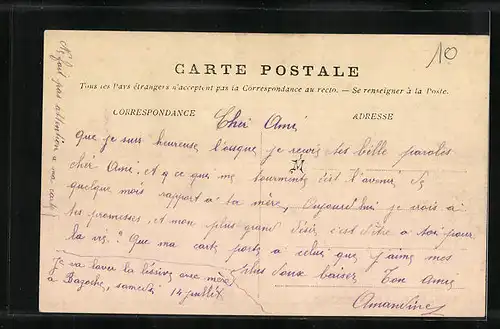 10
CARTE POSTALE
Tous les Pays étrangers n'acceptent pas la Correspondance au recto. — Se renseigner à la Poste.
CORRESPONDANCE
ADRESSE
Cher Ami
Que je suis heureuse l'orsque je recois tes belle paroles
chér Ami, et ce qui me tourmente c'est l'avenir de
quelque mois rapport a ta mère, Aujourd'hui je crois à
tes promesses, et mon plus grand désir c'est d'être a toi pour
la vie. Que ma carte porte a celui que j'aime mes
plus doux baiser Ton Amie
Amandine
Je va laver la lésive avec mère
a Bazoche, samedi 14 juillet
N'fait pas attention a ma carte